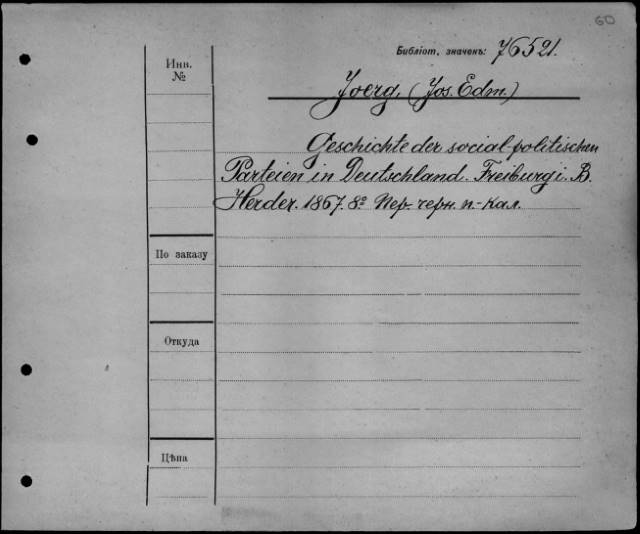 60
Библіот. значенъ: 76521.
Инв.
№
Joerg, (Jos. Edm.)
Geschichte der social-politischen
Parteien in Deutschland. Freiburg i. B.
Herder. 1867. 8º Пер. черн. п.-кал.
По заказу
Откуда
Цѣна